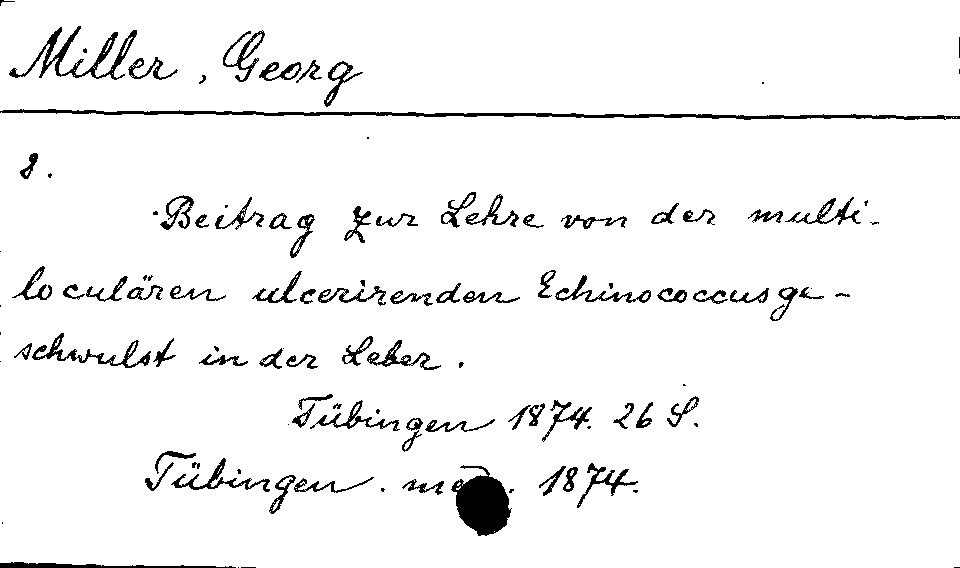 Miller, Georg
8.
Beitrag zur Lehre von der multi-
loculären ulcerirenden Echinococcusge-
schwulst in der Leber.
Tübingen 1874. 26 S.
Tübingen. med. 1874.